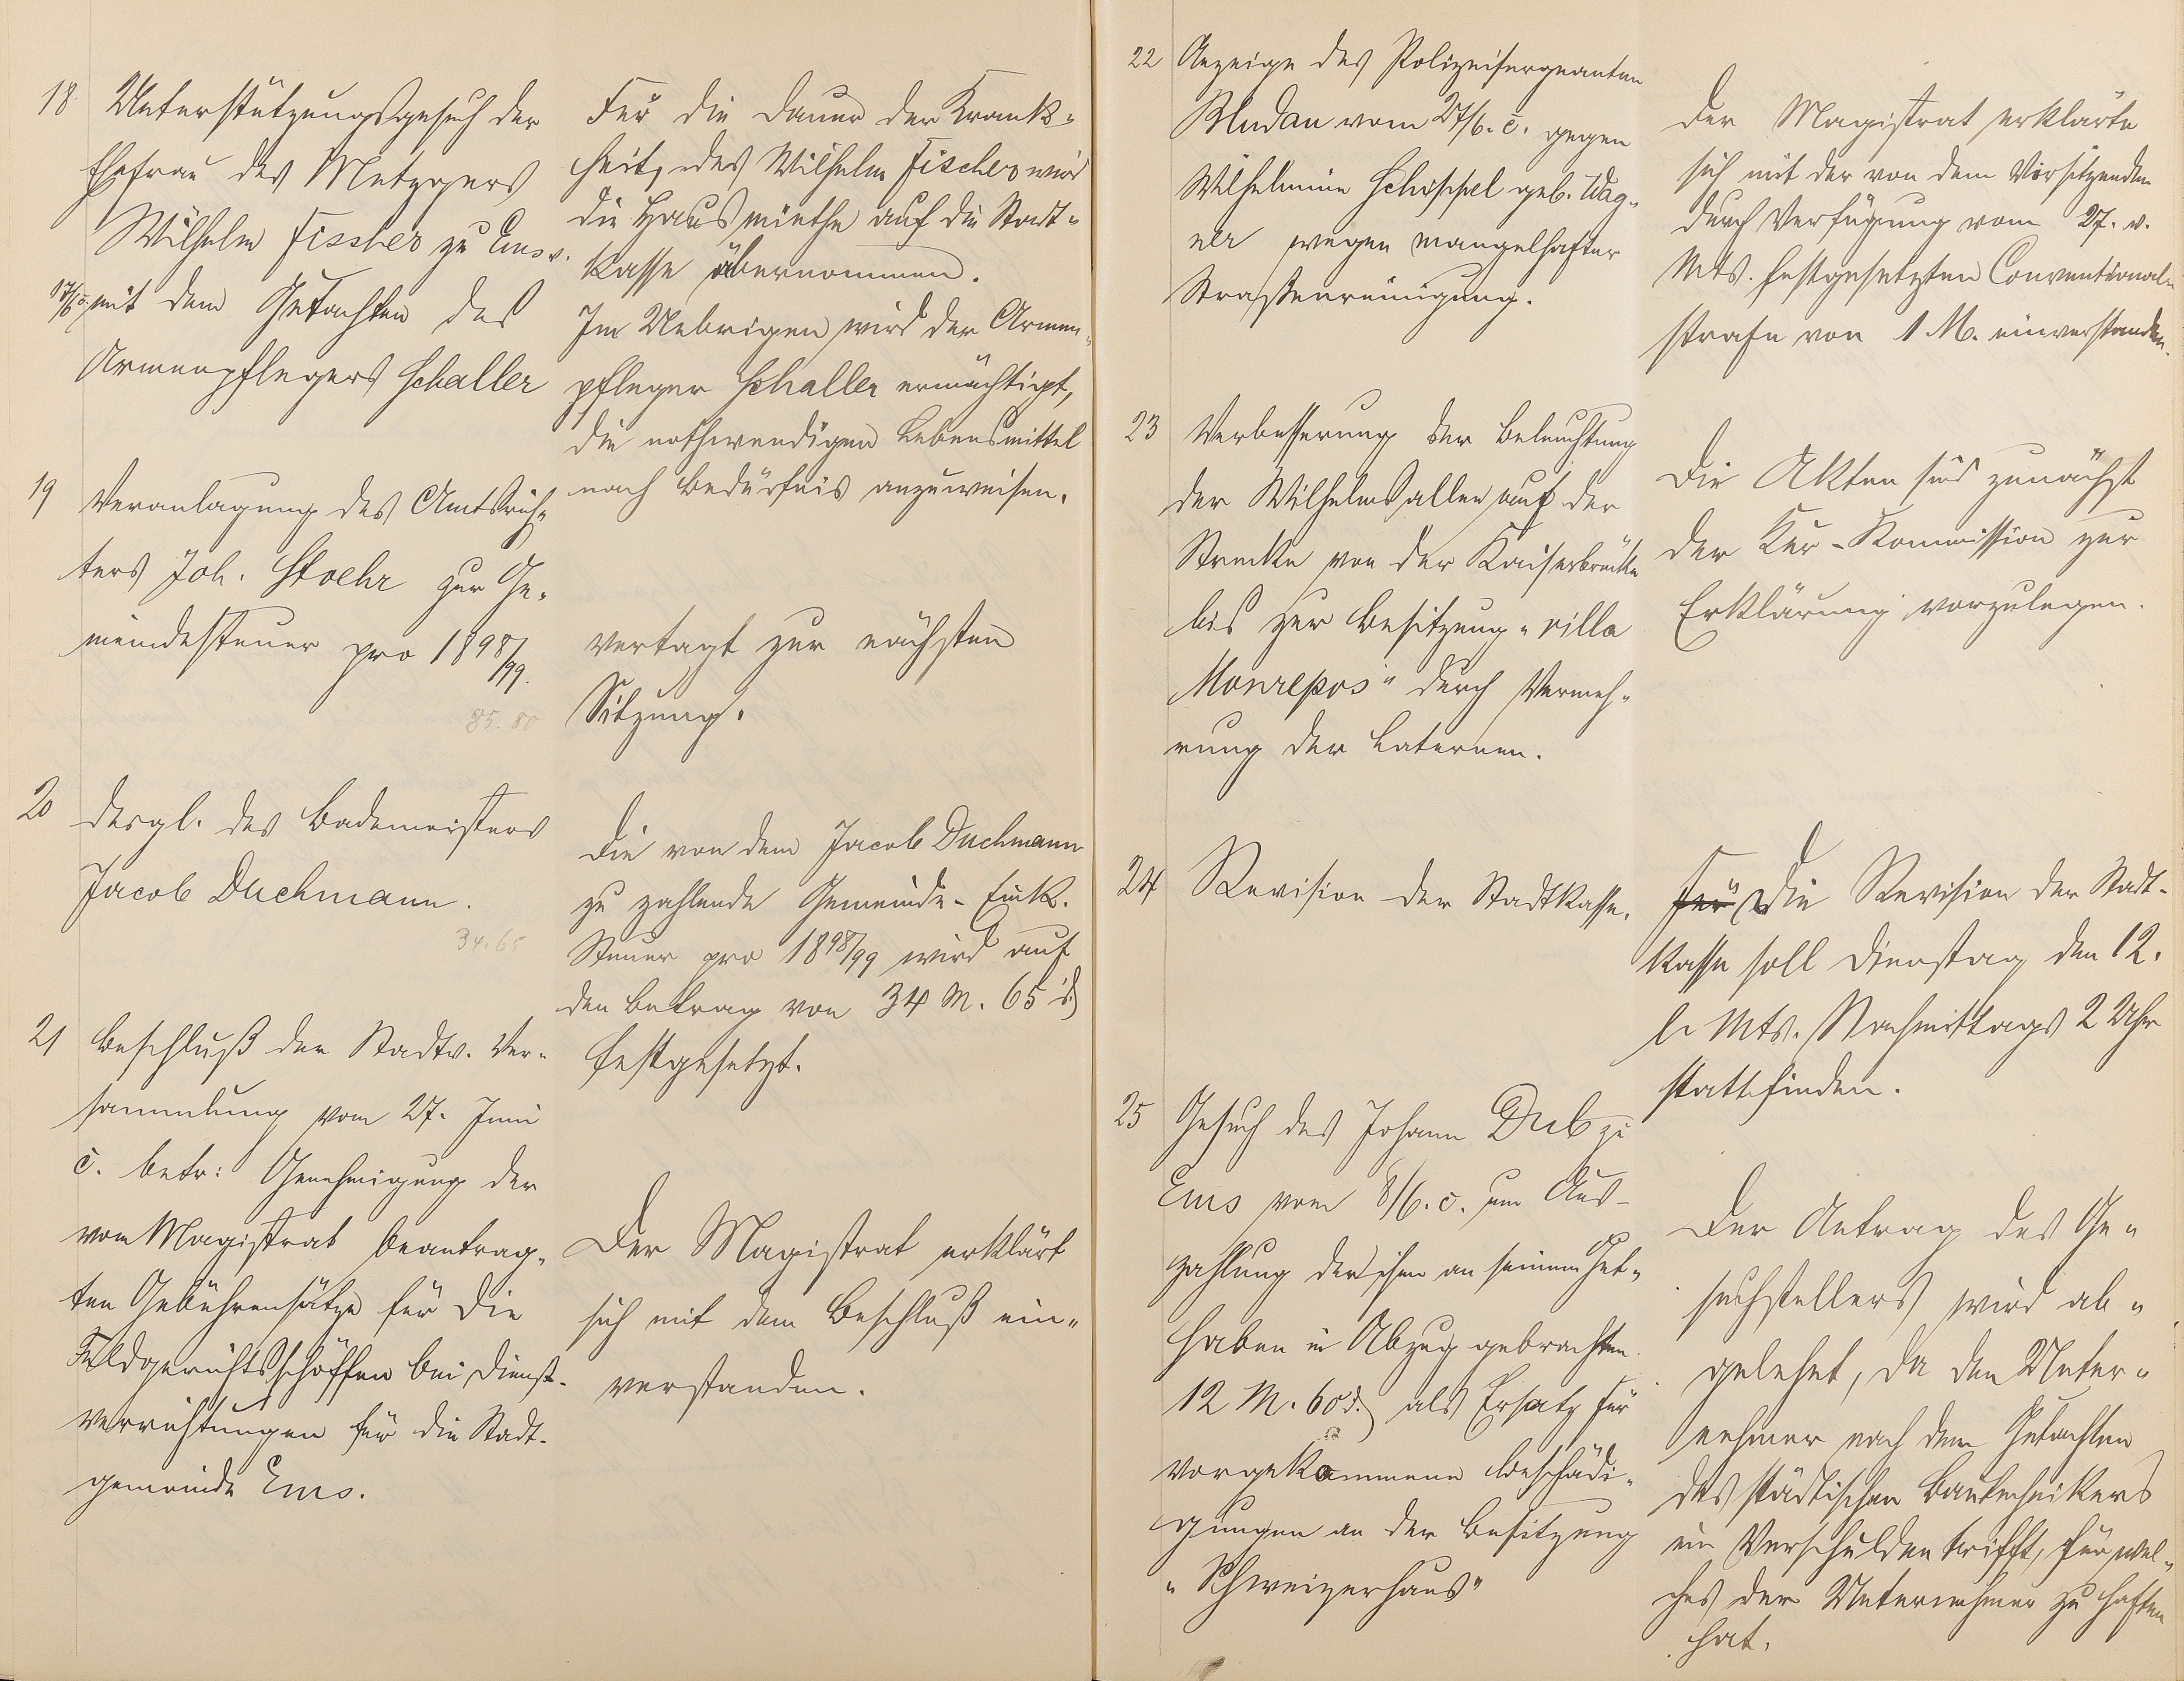 18 Unterstützungsgesuch der
Ehefrau des Metzgers
Wilhelm Fischer zu Ems v.
17/6 c. mit dem Gutachten des
Armenpflegers Schaller
Für die Dauer der Krank-
heit des Wilhelm Fischer wird
die Hausmiethe auf die Stadt-
kasse übernommen.
Im Uebrigen wird der Armen-
pfleger Schaller ermächtigt,
die nothwendigen Lebensmittel
nach Bedürfnis anzuweisen.
19 Veranlagung des Amtsrich-
ters Joh. Stoehr zur Ge-
meindesteuer pro 1898/99.
85.80
Vertagt zur nächsten
Sitzung.
20 Desgl. des Bademeisters
Jacob Duchmann.
34.65
Die von dem Jacob Duchmann
zu zahlende Gemeinde-Eink.
Steuer pro 1898/99 wird auf
den Betrag von 34 M. 65 d.
festgesetzt.
21 Beschluß der Stadtv. Ver-
sammlung vom 27. Juni
c. betr: Genehmigung der
vom Magistrat beantrag-
ten Gebührensätze für die
Feldgerichtsschöffen bei Dienst-
verrichtungen für die Stadt-
gemeinde Ems.
Der Magistrat erklärt
sich mit dem Beschluß ein-
verstanden.
22 Anzeige des Polizeisergeanten
Mudau vom 27/6. c. gegen
Wilhelmine Schippel geb. Wag-
ner wegen mangelhafter
Straßenreinigung.
Der Magistrat erklärte
sich mit der von dem Vorsitzenden
durch Verfügung vom 27. v.
Mts. festgesetzten Conventional-
strafe von 1 M. einverstanden.
23 Verbesserung der Beleuchtung
der Wilhelmsallee auf der
Strecke von der Kaiserbrücke
bis zur Besitzung "Villa
Monrepos" durch Vermeh-
rung der Laternen.
Die Akten sind zunächst
der Kur-Kommission zur
Erklärung vorzulegen.
24 Revision der Stadtkasse.
Für Die Revision der Stadt-
kasse soll Dienstag den 12.
l. Mts. Nachmittags 2 Uhr
stattfinden.
25 Gesuch des Johann Dub zu
Ems vom 8/6. c. um Aus-
zahlung der ihm an seinem Gut-
haben in Abzug gebrachten
12 M. 60 d. als Ersatz für
vorgekommene Beschädi-
gungen an der Besitzung
"Schweizerhaus"
Der Antrag des Ge-
suchstellers wird ab-
gelehnt, da den Unter-
nehmer nach dem Gutachten
des städtischen Bautechnikers
ein Verschulden trifft, für wel-
ches der Unternehmer zu haften
hat.